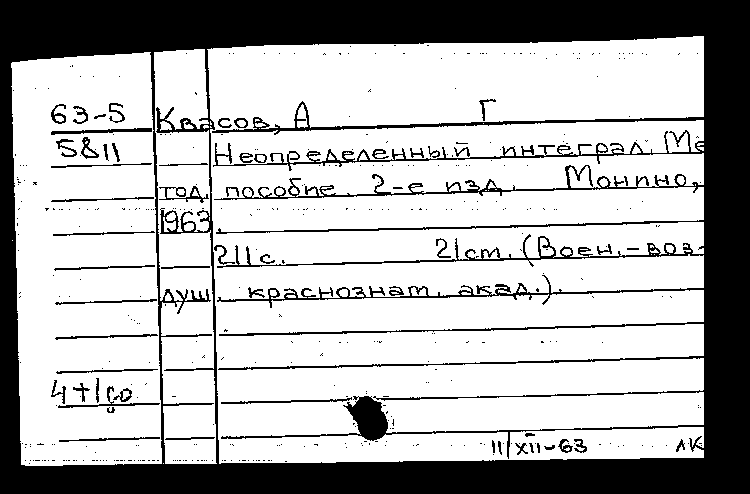 63-5 Квасов, А Г
5811 Неопределенный интеграл. Ме
тод. пособие. 2-е изд. Монино,
1963.
211с. 21см. (Воен.-воз-
душ. краснознам. акад.).
4+1
11/XII-63 ЛК